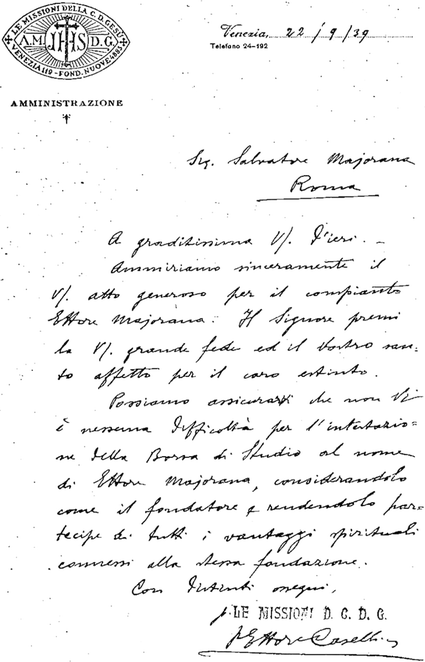 LE MISSIONI DELLA C. D. GESÙ
A.M. IHS D.G.
VENEZIA 119 - FOND. NUOVE 4885
AMMINISTRAZIONE
Venezia, 22/9/39
Telefono 24-192
Sig. Salvatore Majorana
Roma
A graditissima V/. d'ieri. -
Ammiriamo sinceramente il
V/. atto generoso per il compianto
Ettore Majorana. Il Signore premi
la V/. grande fede ed il Vostro san-
to affetto per il caro estinto.
Possiamo assicurarVi che non Vi
è nessuna difficoltà per l'intestazio-
ne della Borsa di Studio al nome
di Ettore Majorana, considerandolo
come il fondatore e rendendolo par-
tecipe di tutti i vantaggi spirituali
connessi alla stessa fondazione.
Con distinti ossequi,
p. LE MISSIONI D. C. D. G.
p. Ettore Caselli